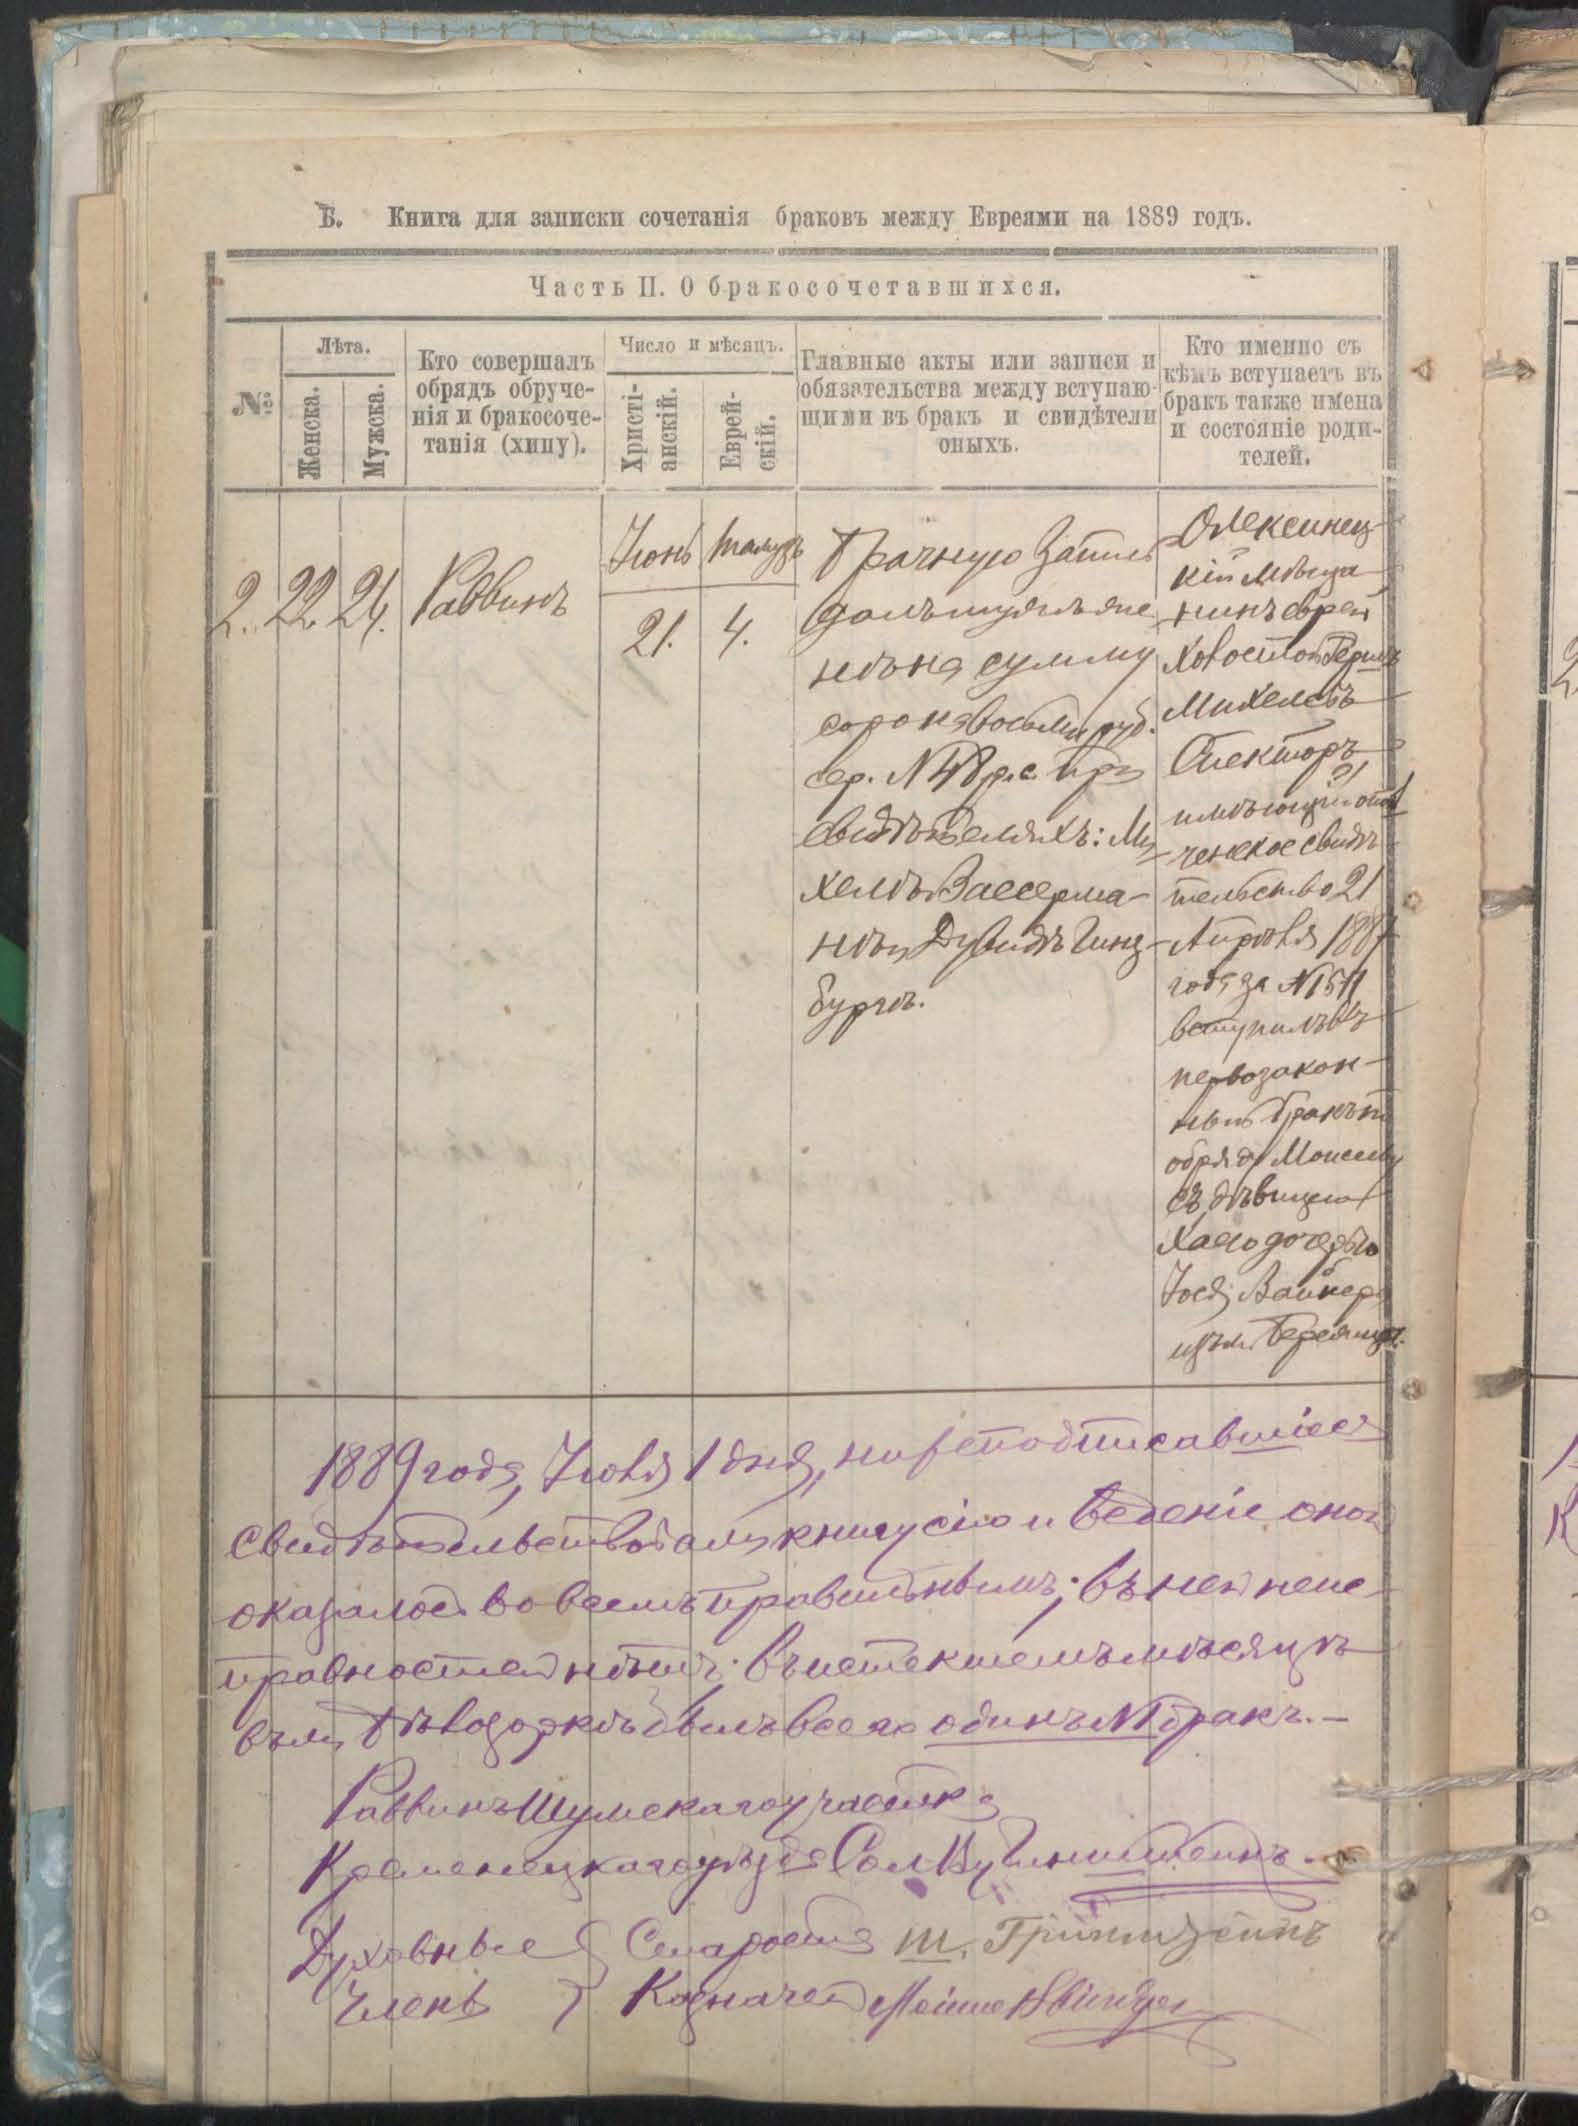 Б. Книга для записки сочетанія браковъ между Евреями на 1889 годъ.
Часть II. О бракосочетавшихся.
№
Лѣта.
Женска.
Мужска.
Кто совершалъ
обрядъ обруче-
нія и бракосоче-
танія (хипу).
Число и мѣсяцъ.
Христі-
анскій.
Еврей-
скій.
Главные акты или записи и
обязательства между вступаю-
щими въ бракъ и свидѣтели
оныхъ.
Кто именно съ
кѣмъ вступаетъ въ
бракъ также имена
и состояніе роди-
телей.
2.
22.
24.
Раввинъ
Іюнь
21.
Тамузъ
4.
Брачную запись
далъ мужъ же
нѣ на сумму
сорокъ восемь руб.
сер. N 48 р. с. При
свидѣтеляхъ: Ми
хелѣ Вассерма-
нѣ и Дувидѣ Гинз-
бургѣ.
Олексинец-
кій мѣща
нинъ еврей
Михелевъ
Спекторъ
имѣющій
свидѣ
тельство 21
Апрѣля 1887
года за N 1571
вступилъ въ
первозакон-
ный бракъ по
обряду Моисееву
съ дѣвицею
Хаею дочерью
Іося Вайнера
изъ м.
1889 года, Іюля 1 дня, нижеподписавшіеся
свидѣтельствовали книгу сію и веденіе оной
оказалось во всемъ правильнымъ; въ ней неис-
правностей нѣтъ; въ истекшемъ мѣсяцѣ
въ м. былъ всего одинъ N 1 бракъ. —
Раввинъ Шумскаго участка
Кременецкаго уѣзда
Духовные
Члены
Староста Ш.
Казначей